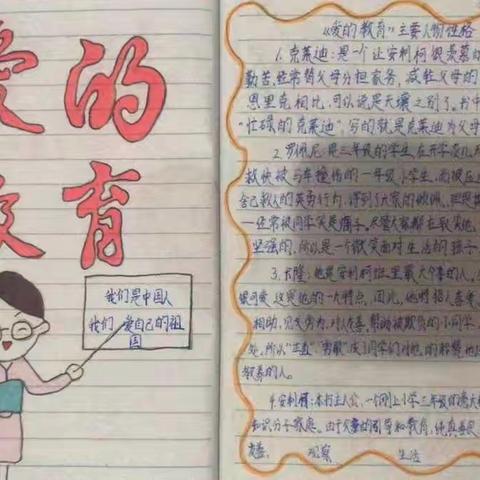 爱的
教育
我们是中国人
我们 爱自己的祖
国
《爱的教育》主要人物性格
1.克莱迪:是一个让安利柯很羡慕的
勤苦,经常替父母分担家务,减轻父母的
恩里克相比,可以说是天壤之别了。书中
"忙碌的克莱迪",写的就是克莱迪为父母
2.罗佩尼:是三年级的学生,在开学
救快被马车撞伤的一年级小学生,而被压
舍己救人的英勇行为,得到了大家的
一经常被同学笑是瘸子,尽管大家都在取笑他,
坚强的,所以是一个微笑面对生活的孩子
3.卡隆:他是安利柯班里最大个善的人,
很可爱,这是他的一大特点,因此,他将招人喜爱
相助,见义勇为,对人友善,帮助被欺负的小同学
处。所以"正直""勇敢"成了同学们对他的称赞
敬善的人。
4.安利柯:本书主人公,一个刚上小学三年级的意大利
知识分子家庭。由于父母的引导和教育,纯真善良
友善, 观察 生活